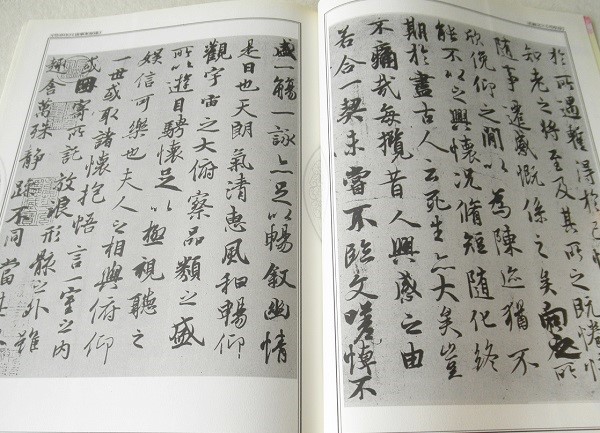 盛一觴一詠亦足以暢叙幽情
是日也天朗氣清惠風和暢仰
觀宇宙之大俯察品類之盛
所以遊目騁懷足以極視聽之
娛信可樂也夫人之相與俯仰
一世或取諸懷抱悟言一室之內
或因寄所託放浪形骸之外雖
趣舍萬殊靜躁不同當其
於所遇蹔得於己快
知老之將至及其所之既惓情
隨事遷感慨係之矣向之所
欣俛仰之間以為陳迹猶不
能不以之興懷況脩短隨化終
期於盡古人云死生亦大矣豈
不痛哉每攬昔人興感之由
若合一契未嘗不臨文嗟悼不